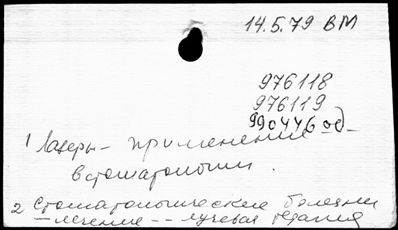 14.5.79 ВМ
976118
976119
990446 од
1 Лазеры - применение -
в стоматологии.
2 Стоматологические болезни
- лечение -- лучевая терапия